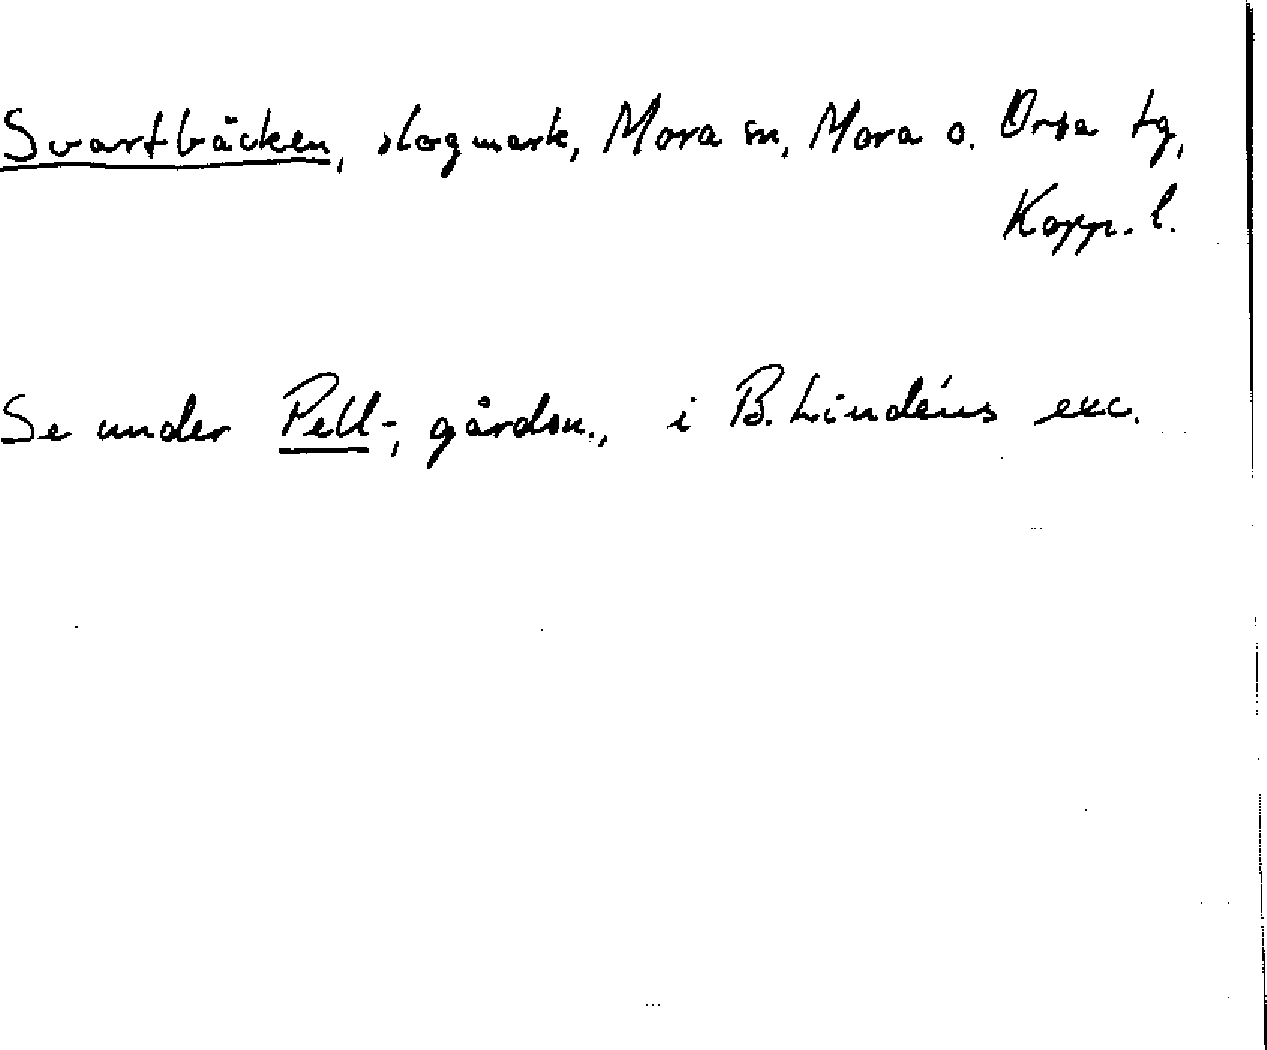 Svartbäcken, slogmark, Mora sn, Mora o. Orsa tg,
Kopp. l.
Se under Pell-, gårdsn., i B. Lindéns exc.